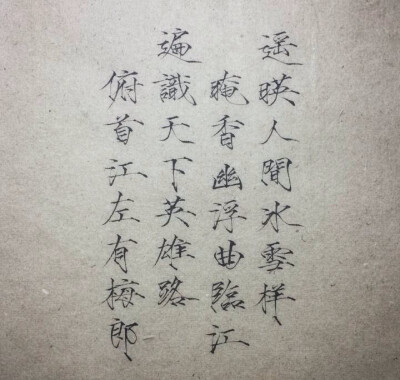 遥暎人間冰雪样、
晻香幽浮曲臨江
遍識天下英雄路
俯首江左有梅郎、